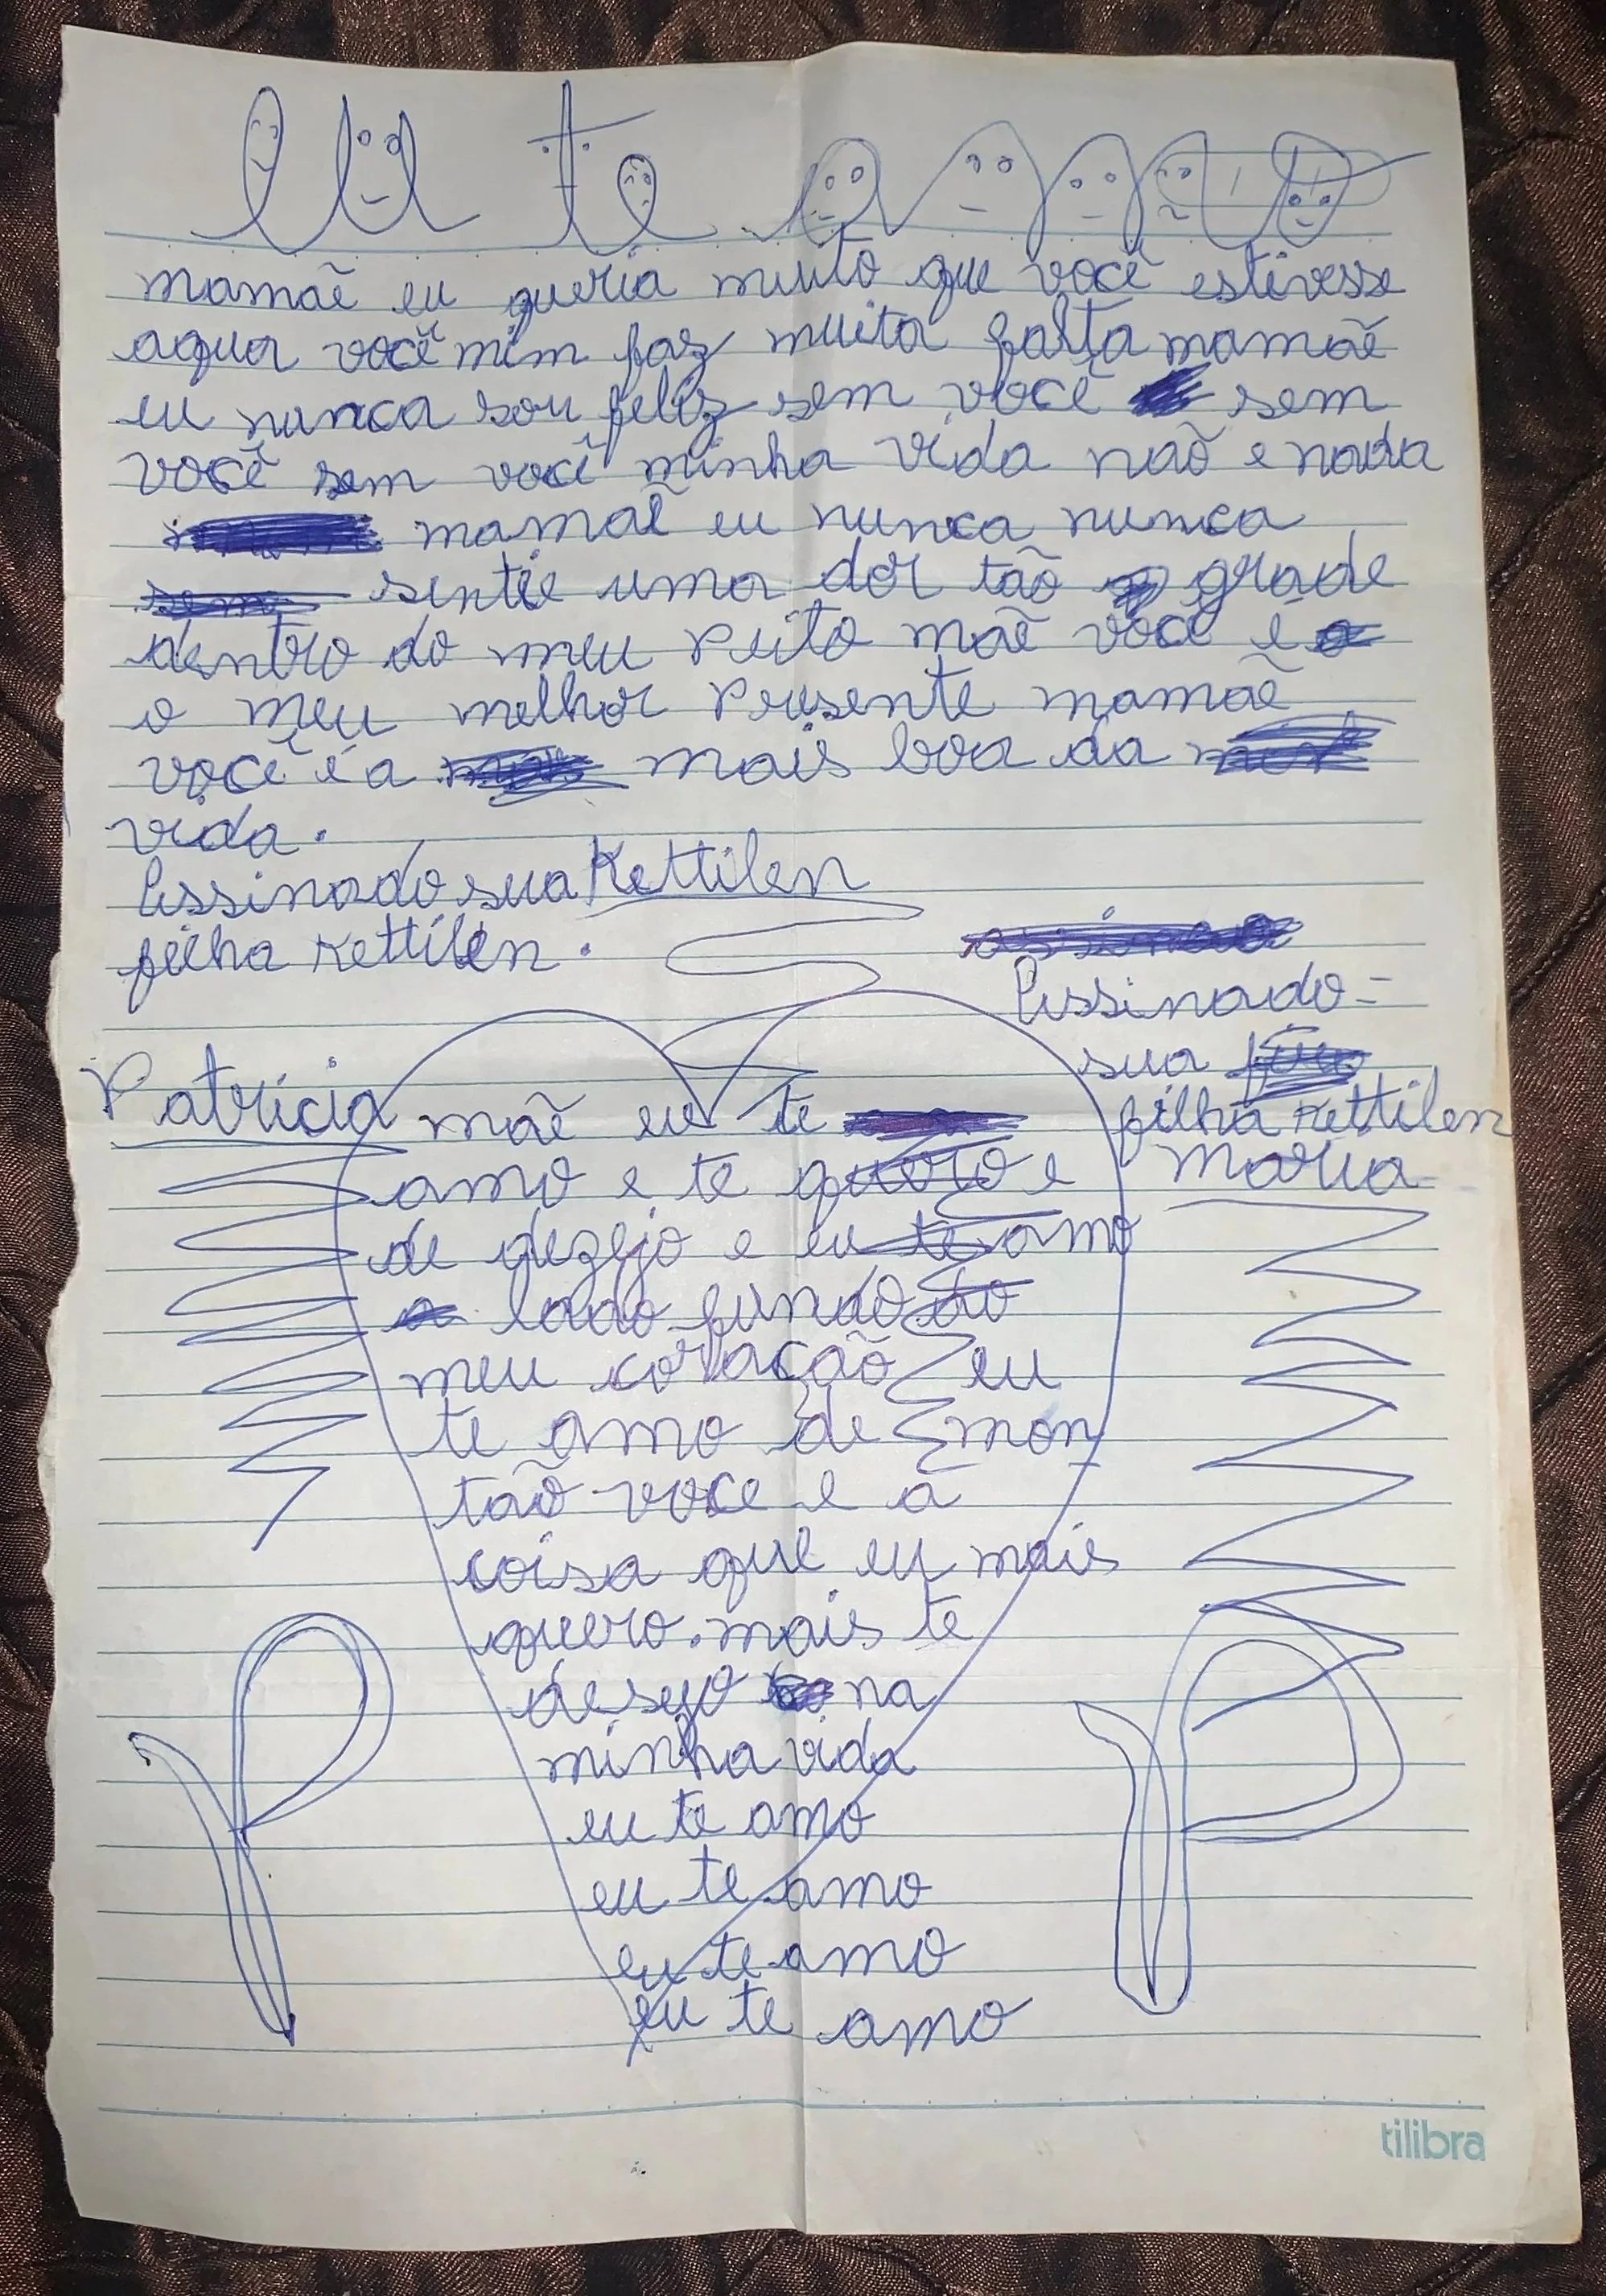 eu te amo
mamãe eu queria muito que você estivesse
aqui você mim faz muita falta mamãe
eu nunca sou feliz sem você sem
você sem você minha vida não e nada
mamãe eu nunca nunca
sentie uma dor tão grade
dentro do meu peito mãe você é
o meu melhor Presente mamãe
você é a mais boa da
vida.
Assinado sua Kettilen
filha Kettilen.
Assinado =
sua
filha Kettilen
Maria
Patrícia
mãe eu te
amo e te quero e
de dezejo e eu te amo
lado fundo do
meu coração eu
te amo de mon
tão voce e a
coisa que eu mais
quero. mais te
desejo na
minha vida
eu te amo
eu te amo
eu te amo
eu te amo
P P
tilibra